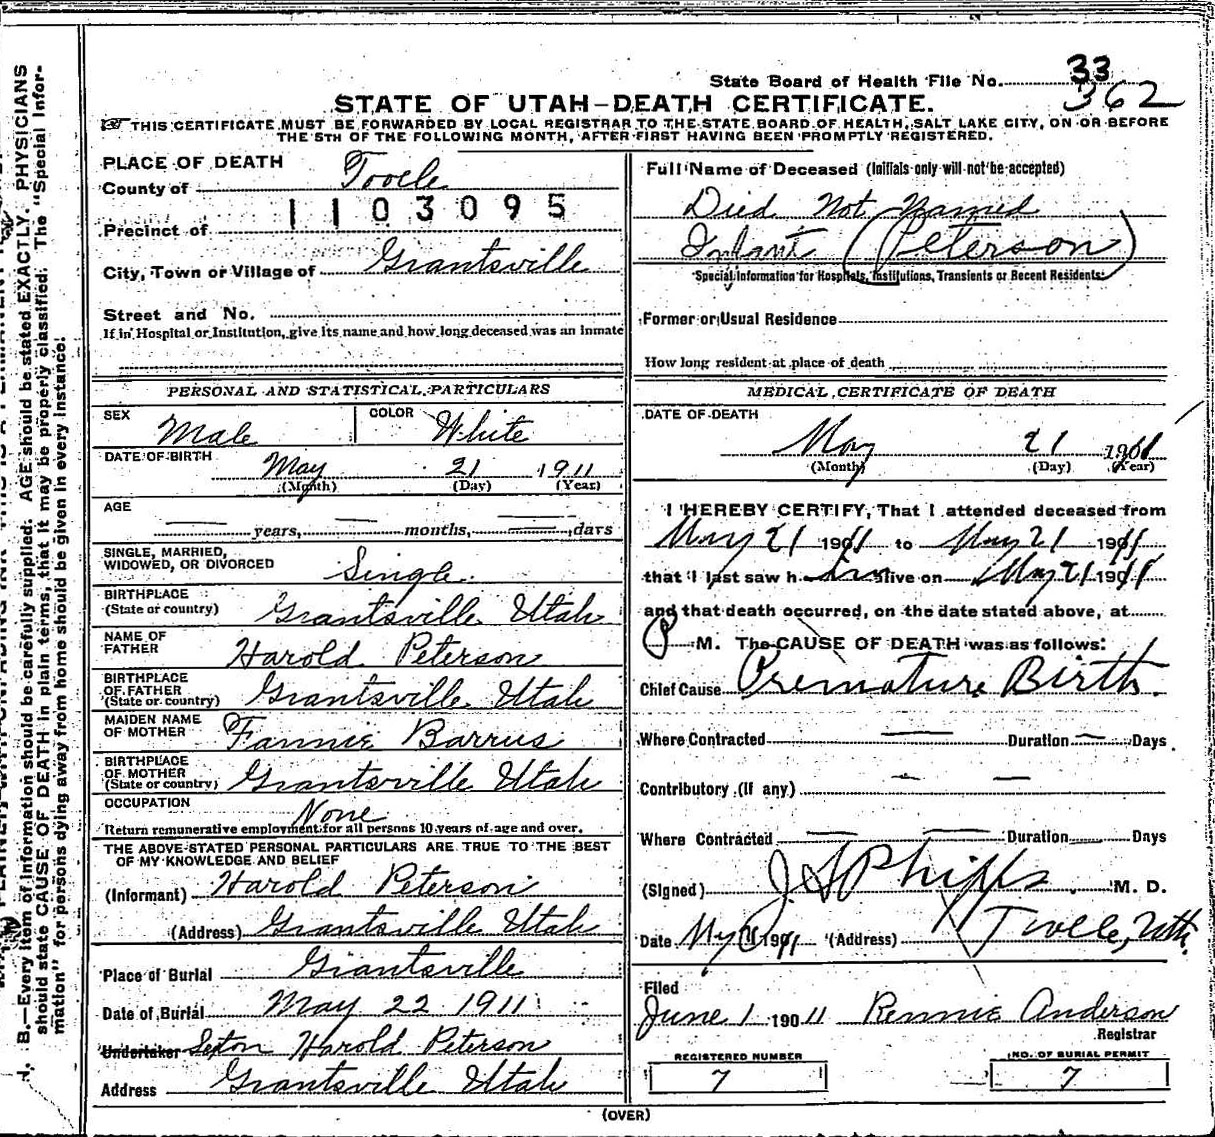 State Board of Health File No. 33
362
STATE OF UTAH–DEATH CERTIFICATE.
THIS CERTIFICATE MUST BE FORWARDED BY LOCAL REGISTRAR TO THE STATE BOARD OF HEALTH, SALT LAKE CITY, ON OR BEFORE
THE 5TH OF THE FOLLOWING MONTH, AFTER FIRST HAVING BEEN PROMPTLY REGISTERED.
PLACE OF DEATH
County of Tooele
1103095
Precinct of
City, Town or Village of Grantsville
Street and No.
If in Hospital or Institution, give its name and how long deceased was an inmate
PERSONAL AND STATISTICAL PARTICULARS
SEX Male COLOR White
DATE OF BIRTH May 21 1911
(Month) (Day) (Year)
AGE
years, months, days
SINGLE, MARRIED,
WIDOWED, OR DIVORCED Single
BIRTHPLACE
(State or country) Grantsville Utah
NAME OF
FATHER Harold Peterson
BIRTHPLACE
OF FATHER
(State or country) Grantsville Utah
MAIDEN NAME
OF MOTHER Fannie Barrus
BIRTHPLACE
OF MOTHER
(State or country) Grantsville Utah
OCCUPATION None
Return remunerative employment for all persons 10 years of age and over.
THE ABOVE STATED PERSONAL PARTICULARS ARE TRUE TO THE BEST
OF MY KNOWLEDGE AND BELIEF
(Informant) Harold Peterson
(Address) Grantsville Utah
Place of Burial Grantsville
Date of Burial May 22 1911
Undertaker Sexton Harold Peterson
Address Grantsville Utah
Full Name of Deceased (Initials only will not be accepted)
Died Not Named
Infant (Peterson)
Special Information for Hospitals, Institutions, Transients or Recent Residents:
Former or Usual Residence
How long resident at place of death
MEDICAL CERTIFICATE OF DEATH
DATE OF DEATH
May 21 1911
(Month) (Day) (Year)
I HEREBY CERTIFY, That I attended deceased from
May 21 1911 to May 21 1911
that I last saw him alive on May 21 1911
and that death occurred, on the date stated above, at
P M. The CAUSE OF DEATH was as follows:
Chief Cause Premature Birth.
Where Contracted Duration Days
Contributory (If any)
Where Contracted Duration Days
(Signed) J A Phipps M. D.
Date 1911 (Address) Tooele, Utah.
Filed
June 1 1911 Rennie Anderson
Registrar
REGISTERED NUMBER
7
NO. OF BURIAL PERMIT
7
(OVER)
B.—Every item of information should be carefully supplied. AGE should be stated EXACTLY. PHYSICIANS
should state CAUSE OF DEATH in plain terms, that it may be properly classified. The "Special Infor-
mation" for persons dying away from home should be given in every instance.